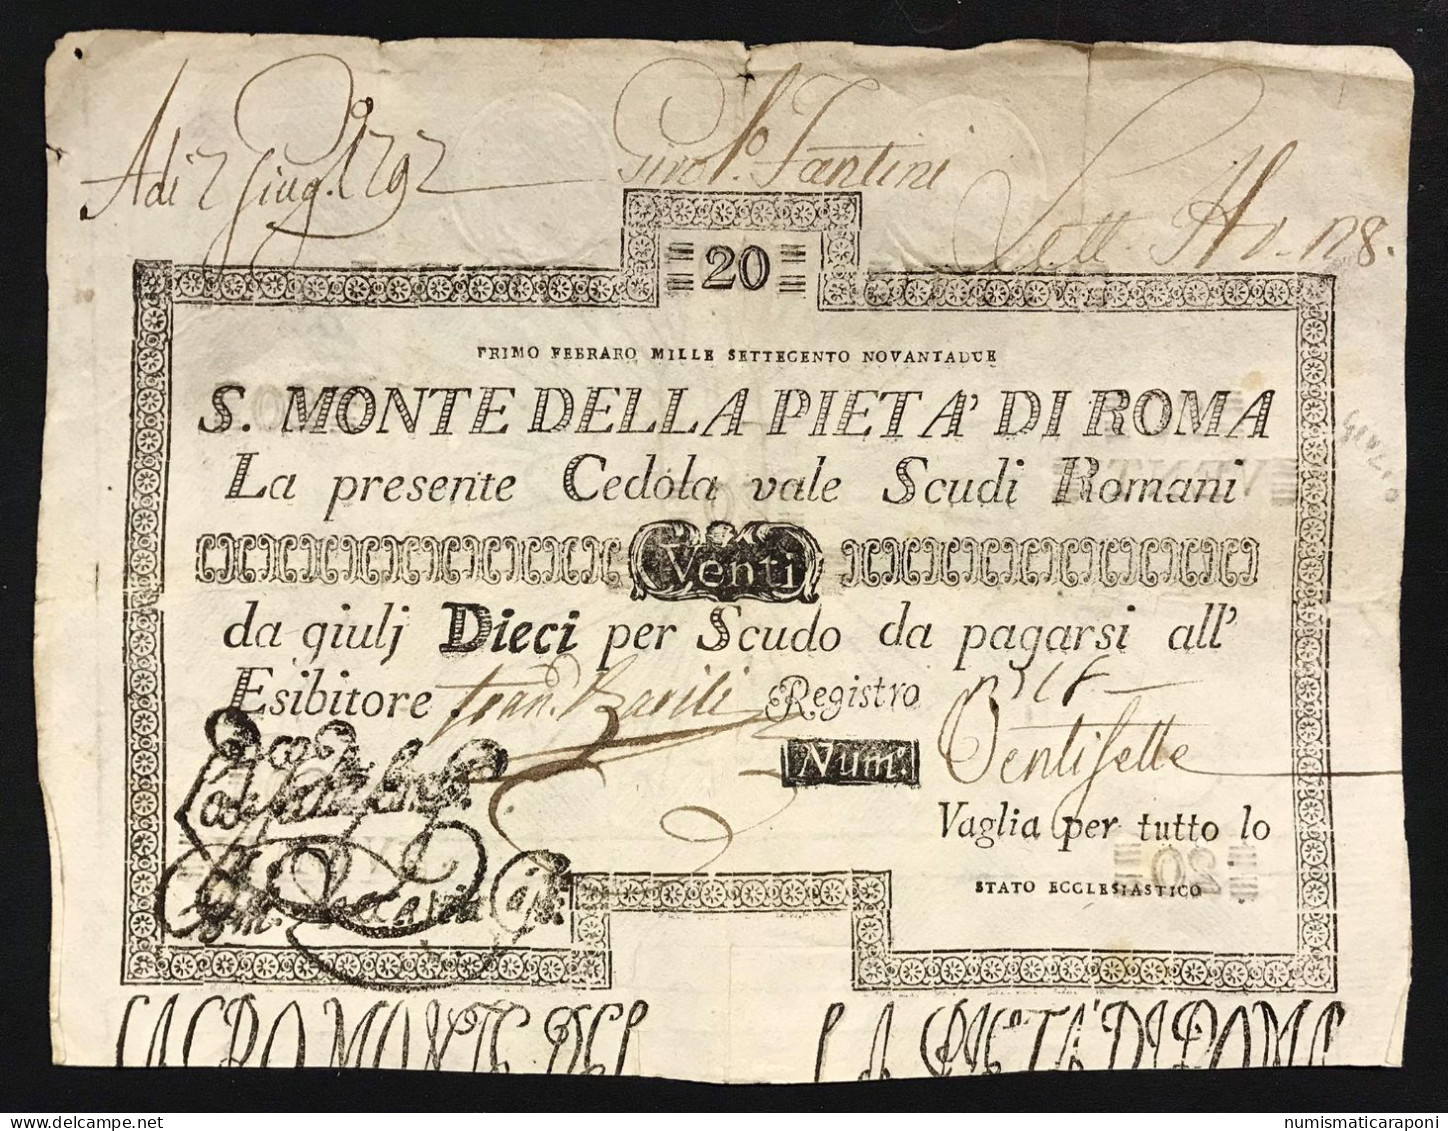 Adi 2 Giug. 1792
Girol.º Fantini
Lett. H. n. 128.
20
PRIMO FEBRARO MILLE SETTECENTO NOVANTADUE
S. MONTE DELLA PIETA' DI ROMA
La presente Cedola vale Scudi Romani
Venti
da giulj Dieci per Scudo da pagarsi all'
Esibitore Registro
Num. Ventisette
Vaglia per tutto lo
20
STATO ECCLESIASTICO
SACRO MONTE DEL LA PIETA' DI ROMA
numismaticaraponi